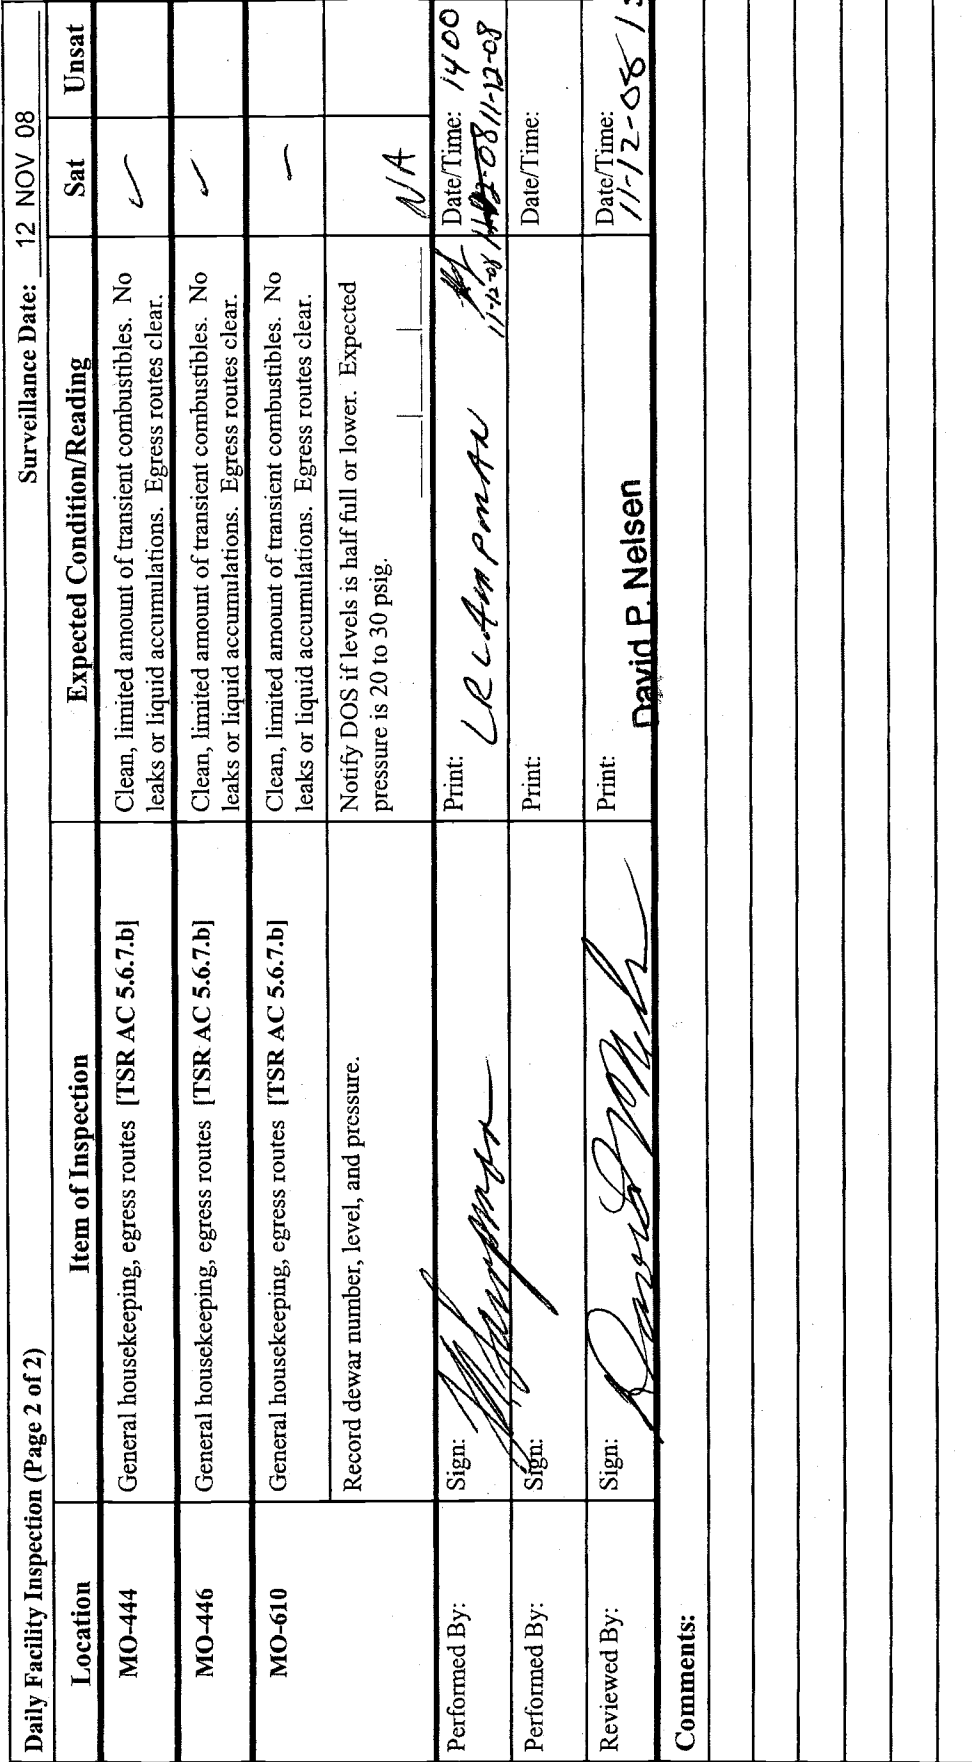 Daily Facility Inspection (Page 2 of 2) Surveillance Date: 12 NOV 08
Location Item of Inspection Expected Condition/Reading Sat Unsat
MO-444 General housekeeping, egress routes [TSR AC 5.6.7.b] Clean, limited amount of transient combustibles. No
leaks or liquid accumulations. Egress routes clear.
MO-446 General housekeeping, egress routes [TSR AC 5.6.7.b] Clean, limited amount of transient combustibles. No
leaks or liquid accumulations. Egress routes clear.
MO-610 General housekeeping, egress routes [TSR AC 5.6.7.b] Clean, limited amount of transient combustibles. No
leaks or liquid accumulations. Egress routes clear.
Record dewar number, level, and pressure. Notify DOS if levels is half full or lower. Expected
pressure is 20 to 30 psig.
NA
Performed By: Sign: Print: LR LAMPMAN Date/Time: 1400
11-12-08 11-12-08
Performed By: Sign: Print: Date/Time:
Reviewed By: Sign: Print: David P. Nelsen Date/Time:
11-12-08
Comments: